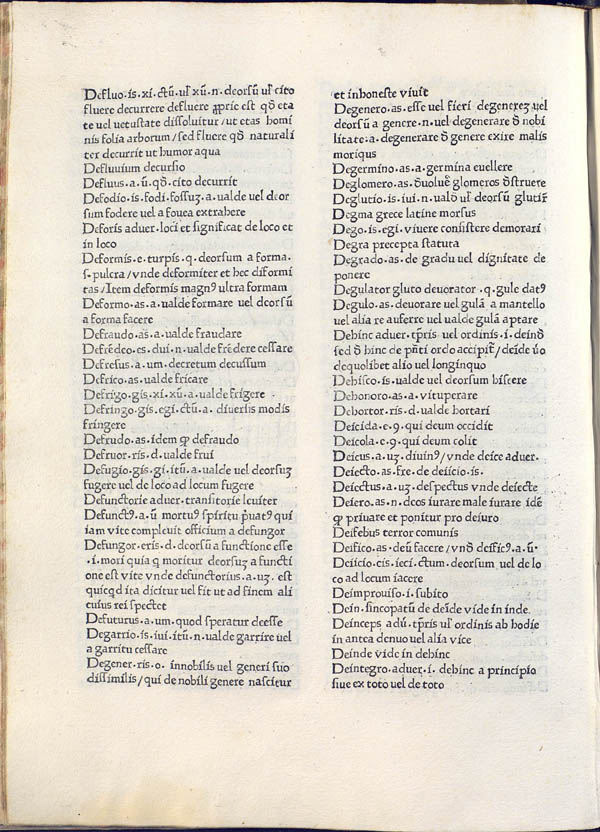 Defluo.is.xi.ctū.uł xū.n.deorsū uł cito
fluere decurrere defluere ꝓprie est qđ eta
te uel uetustate dissoluitur/ut etas homi
nis folia arborum/sed fluere qđ naturali
ter decurrit ut humor aqua
Defluuium decursio
Defluus.a.ū.qđ.cito decurrit
Defodio.is.fodi.fossuꝫ.a.ualde uel deor
sum fodere uel a fouea extrahere
Deforis aduer.loci et significat de loco et
in loco
Deformis.e.turpis.q.deorsum a forma.
s.pulcra/vnde deformiter et hec diformi
tas/Item deformis magnꝰ ultra formam
Deformo.as.a.ualde formare uel deorsū
a forma facere
Defraudo.as.a.ualde fraudare
Defrēdeo.es.dui.n.ualde frēdere cessare
Defresus.a.um.decretum decussum
Defrico.as.ualde fricare
Defrigo.gis.xi.xū.a.ualde frigere
Defringo.gis.egi.ctū.a.diuersis modis
fringere
Defrudo.as.idem ꝙ defraudo
Defruor.ris.d.ualde frui
Defugio.gis.gi.itū.a.ualde uel deorsuꝫ
fugere uel de loco ad locum fugere
Defunctorie aduer.transitorie leuiter
Defunctꝰ.a.ū mortuꝰ spiritu p̄uatꝰ qui
iam vite compleuit officium a defungor
Defungor.eris.d.deorsū a functione esse
.i.mori quia q̄ moritur deorsuꝫ a functi
one est vite vnde defunctorius.a.uꝫ.est
quicqd ita dicitur uel fit ut ad finem ali
cuius rei spectet
Defuturus.a.um.quod speratur deesse
Degarrio.is.iui.itū.n.ualde garrire uel
a garritu cessare
Degener.ris.o.innobilis uel generi suo
dissimilis/qui de nobili genere nascitur
et inhoneste viuit
Degenero.as.esse uel fieri degenereꝫ uel
deorsū a genere.n.uel degenerare đ nobi
litate:a.degenerare đ genere exire malis
moriqus
Degermino.as.a germina euellere
Deglomero.as.đuoluē glomeros đstruere
Deglutio.is.iui.n.ualđ uł deorsū glutiř
Degma grece latine morsus
Dego.is.egi.viuere consistere demorari
Degra precepta statuta
Degrado.as.de gradu uel dignitate de
ponere
Degulator gluto deuorator.q.gule datꝰ
Degulo.as.deuorare uel gulā a mantello
uel alia re auferre uel ualde gulā aptare
Dehinc aduer.tp̄ris uel ordinis.i.deinđ
sed đ hinc de p̄nti ordo accipit᷑/deide ūo
dequelibet alio uel longinquo
Dehisco.is.ualde uel deorsum hiscere
Dehonoro.as.a.vituperare
Dehortor.ris.d.ualde hortari
Deicida.e.9.qui deum occidit
Deicola.e.9.qui deum colit
Deicus.a.uꝫ.diuinꝰ/vnde deice aduer.
Deiecto.as.fre.de deiicio.is.
Deiectus.a.uꝫ.despectus vnde deiecte
Deiero.as.n.deos iurare male iurare idē
ꝙ priuare et ponitur pro deiuro
Deifebus terror comunis
Deifico.as.deū facere/vnđ deificꝰ.a.ū.
Deiicio.cis.ieci.ctum.deorsum uel de lo
co ad locum iacere
Deimprouiso.i.subito
Dein.sincopatū de deide vide in inde.
Deinceps adū.tp̄ris uł ordinis ab hodie
in antea denuo uel alia vice
Deinde vide in dehinc
Deintegro.aduer.i.dehinc a principio
siue ex toto uel de toto